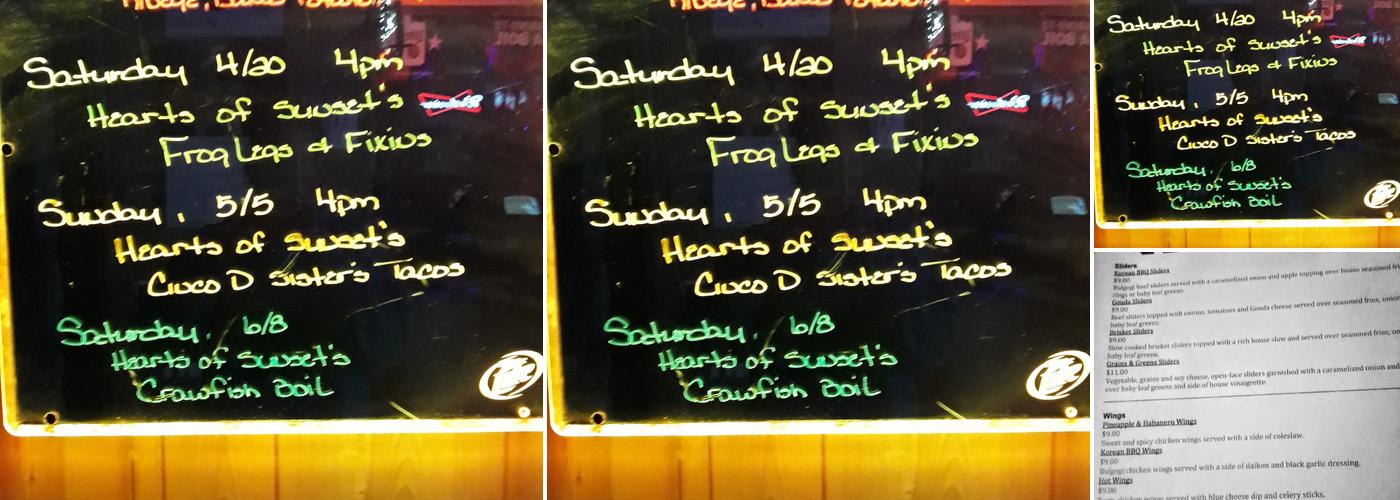 Saturday 4/20 4pm
Hearts of Sunset's
Frog Legs & Fixins
Sunday, 5/5 4pm
Hearts of Sunset's
Cinco D Sister's Tacos
Saturday, 6/8
Hearts of Sunset's
Crawfish Boil
Saturday 4/20 4pm
Hearts of Sunset's
Frog Legs & Fixins
Sunday, 5/5 4pm
Hearts of Sunset's
Cinco D Sister's Tacos
Saturday, 6/8
Hearts of Sunset's
Crawfish Boil
Saturday 4/20 4pm
Hearts of Sunset's
Frog Legs & Fixins
Sunday, 5/5 4pm
Hearts of Sunset's
Cinco D Sister's Tacos
Saturday, 6/8
Hearts of Sunset's
Crawfish Boil
Sliders
Korean BBQ Sliders
$9.00
Bulgogi beef sliders served with a caramelized onion and apple topping over house seasoned
rings or baby leaf greens.
Gouda Sliders
$9.00
Beef sliders topped with onions, tomatoes and Gouda cheese served over seasoned fries,
baby leaf greens.
Brisket Sliders
$9.00
Slow cooked brisket sliders topped with a rich house slaw and served over seasoned fries,
baby leaf greens.
Grains & Greens Sliders
$11.00
Vegetable, grains and soy cheese, open-face sliders garnished with a caramelized onion and
over baby leaf greens and side of house vinaigrette.
Wings
Pineapple & Habanero Wings
$9.00
Sweet and spicy chicken wings served with a side of coleslaw.
Korean BBQ Wings
$9.00
Bulgogi chicken wings served with a side of daikon and black garlic dressing.
Hot Wings
$9.00
chicken wings served with blue cheese dip and celery sticks.